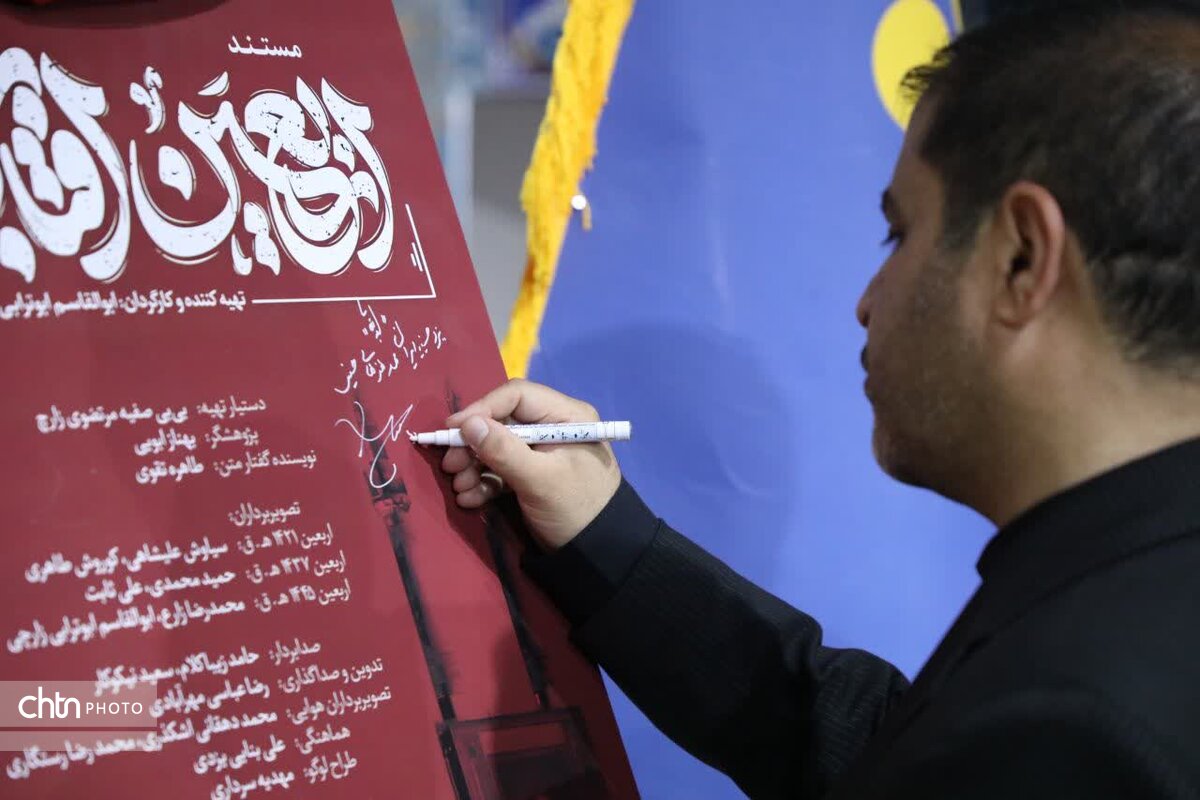 مستند
اربعین آفتاب
تهیه کننده و کارگردان: ابوالقاسم ابوترابی
دستیار تهیه: بی‌بی صفیه مرتضوی زارچ
پژوهشگر: بهناز ایوبی
نویسنده گفتار متن: طاهره تقوی
تصویربرداران:
اربعین ۱۴۲۱ هـ.ق: سیاوش علیشاهی، کوروش طاهری
اربعین ۱۴۳۷ هـ.ق: حمید محمدی، علی ثابت
اربعین ۱۴۴۵ هـ.ق: محمدرضا زارع، ابوالقاسم ابوترابی زارچی
صدابردار: حامد زیباکلام، سعید نیکوکار
تدوین و صداگذاری: رضا عباسی مهرآبادی
تصویربرداران هوایی: محمد دهقانی اشکذری، محمد رضا رستگاری
هماهنگی: علی بنایی یزدی
طراح لوگو: مهدیه سرداری
chtn PHOTO